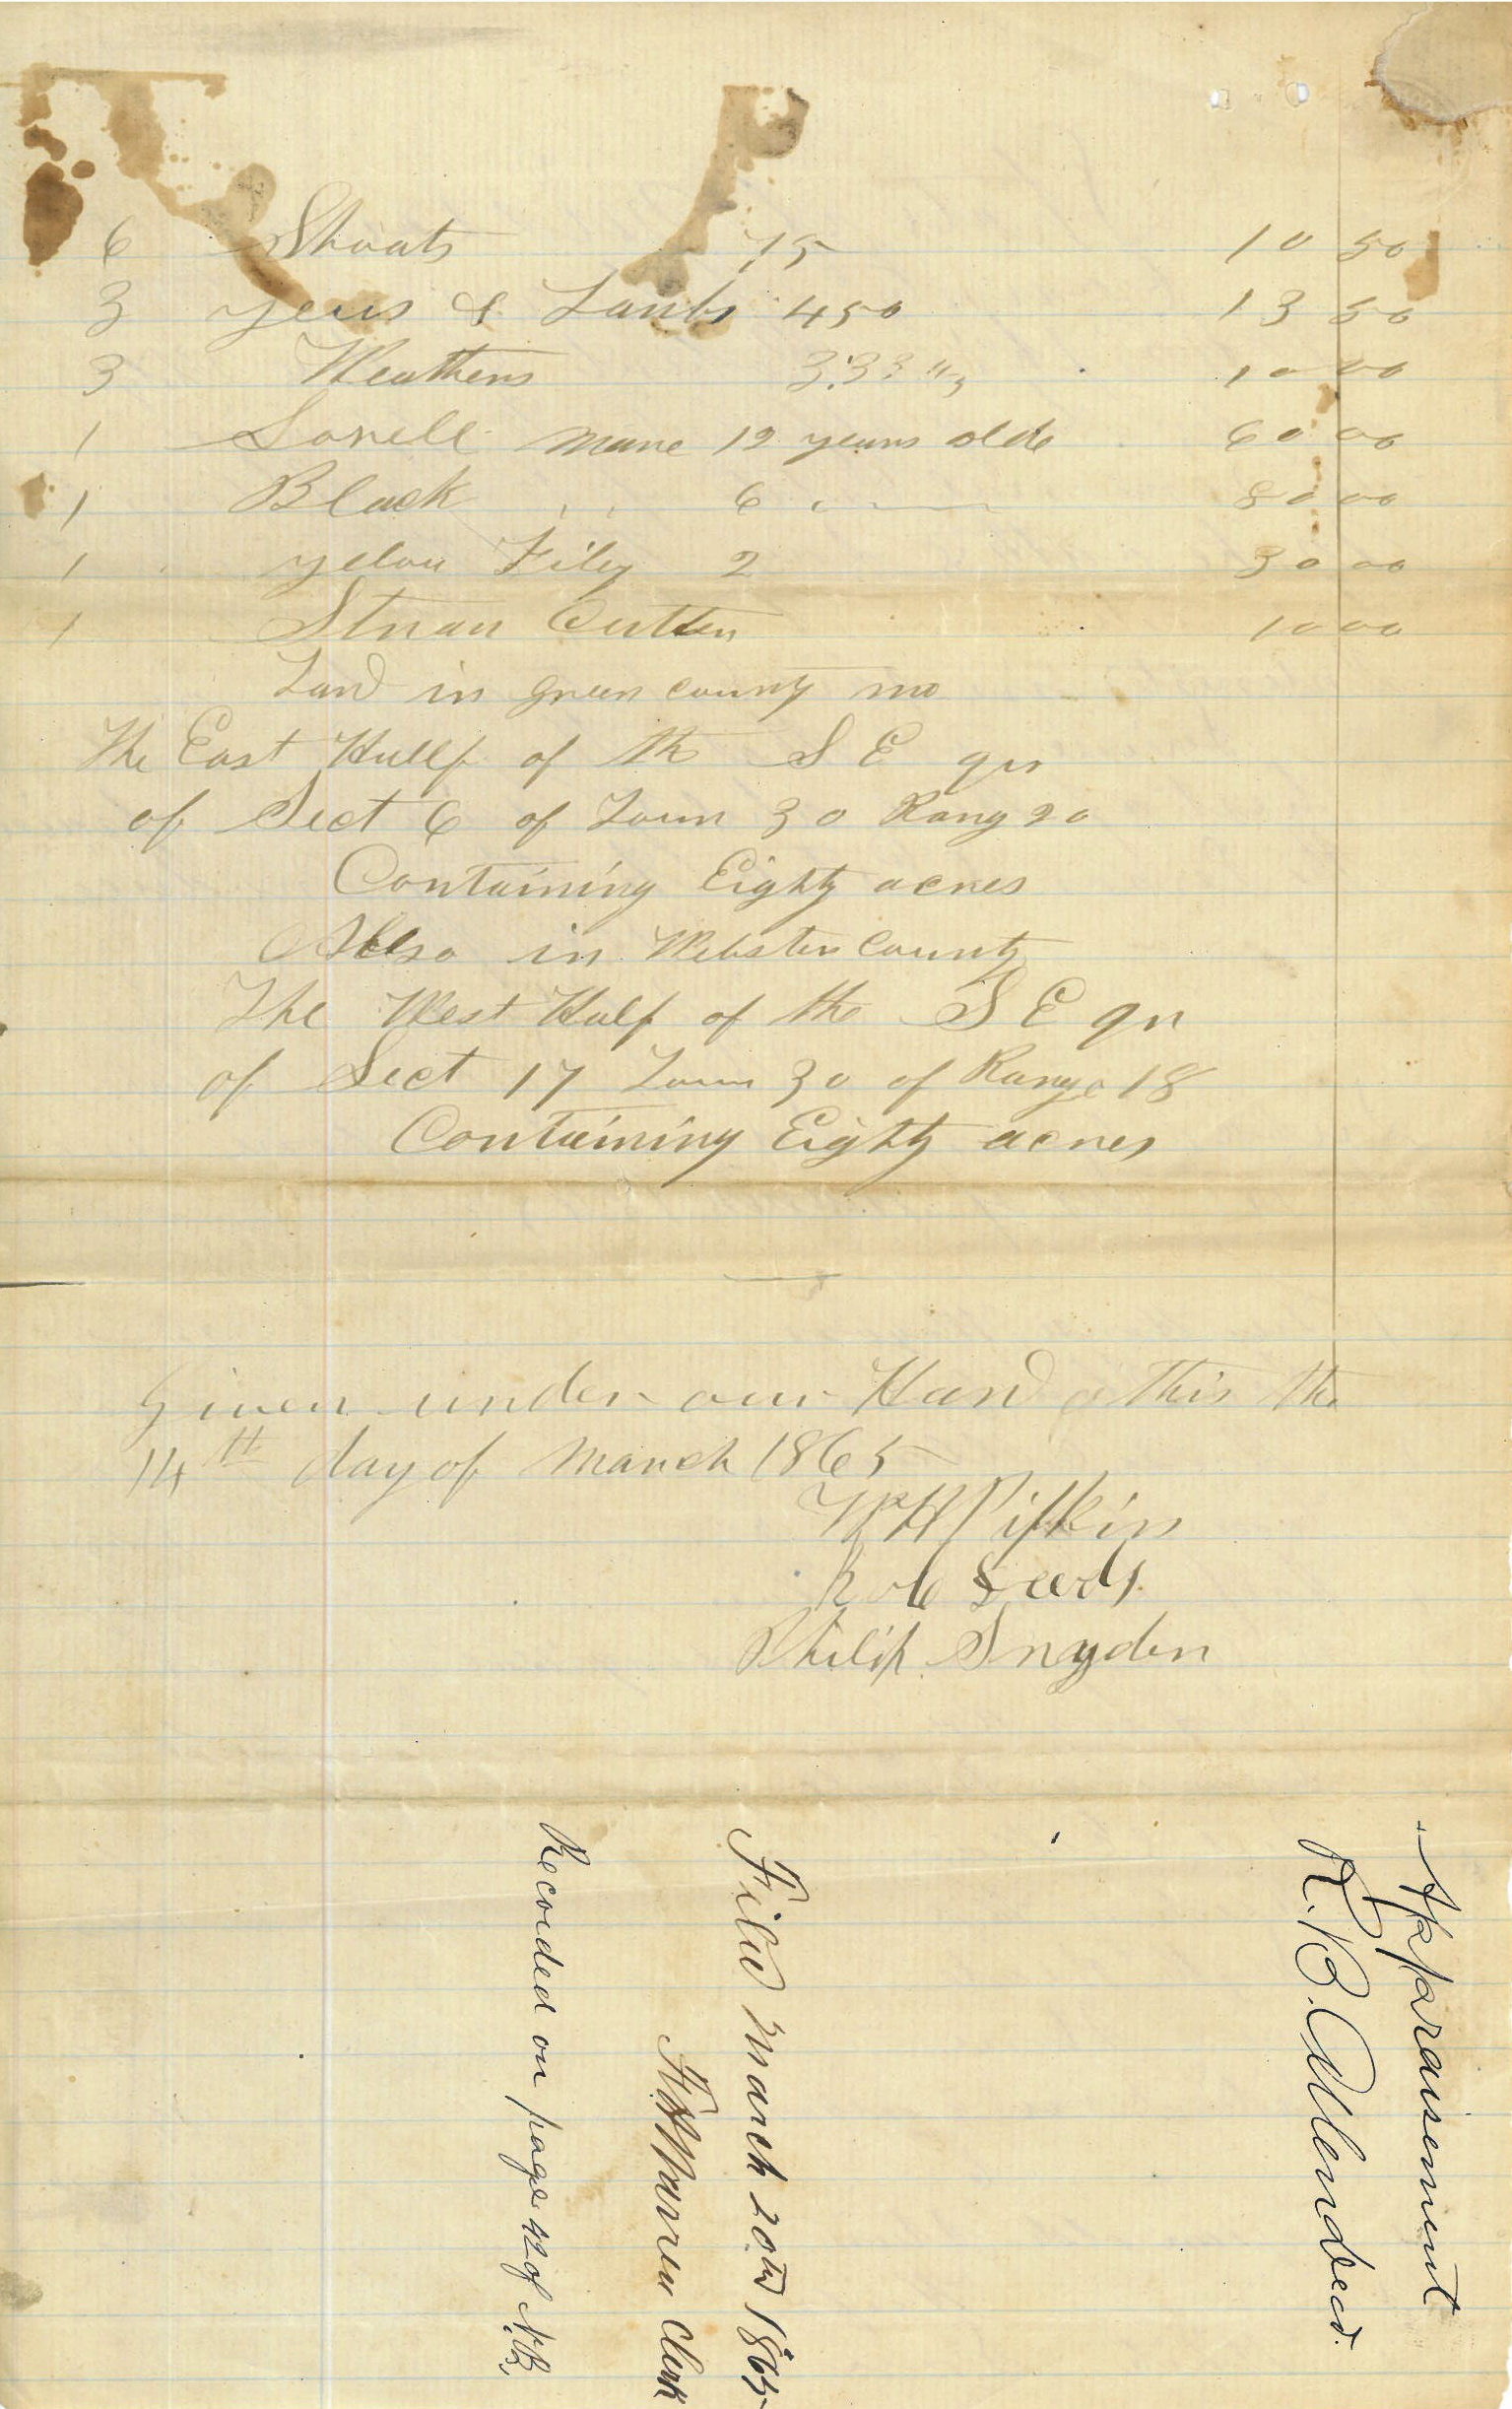 6 Shoats 75 10 50
3 yeus & Lambs 450 13 50
3 Weathers 3.33 1/3 10 00
1 Sorrell mare 12 years olde 60 00
1 Black " " 6 " 80 00
1 yelow Fily 2 30 00
1 Straw Cutter 10 00
Land in green county mo
The East Hallf of th S E qr
of Sect 6 of Town 30 Rang 20
Containing Eighty acres
Allso in Webster County
The West Half of the S E qr
of Sect 17 Town 30 of Range 18
Containing Eighty acres
Given under our Hand this the
14th day of March 1865
Pipkin
Philip Snyder
Appraisement
R. B. Allen decd.
Filed March 20th 1865
Warren Clerk
Recorded on page 42 of